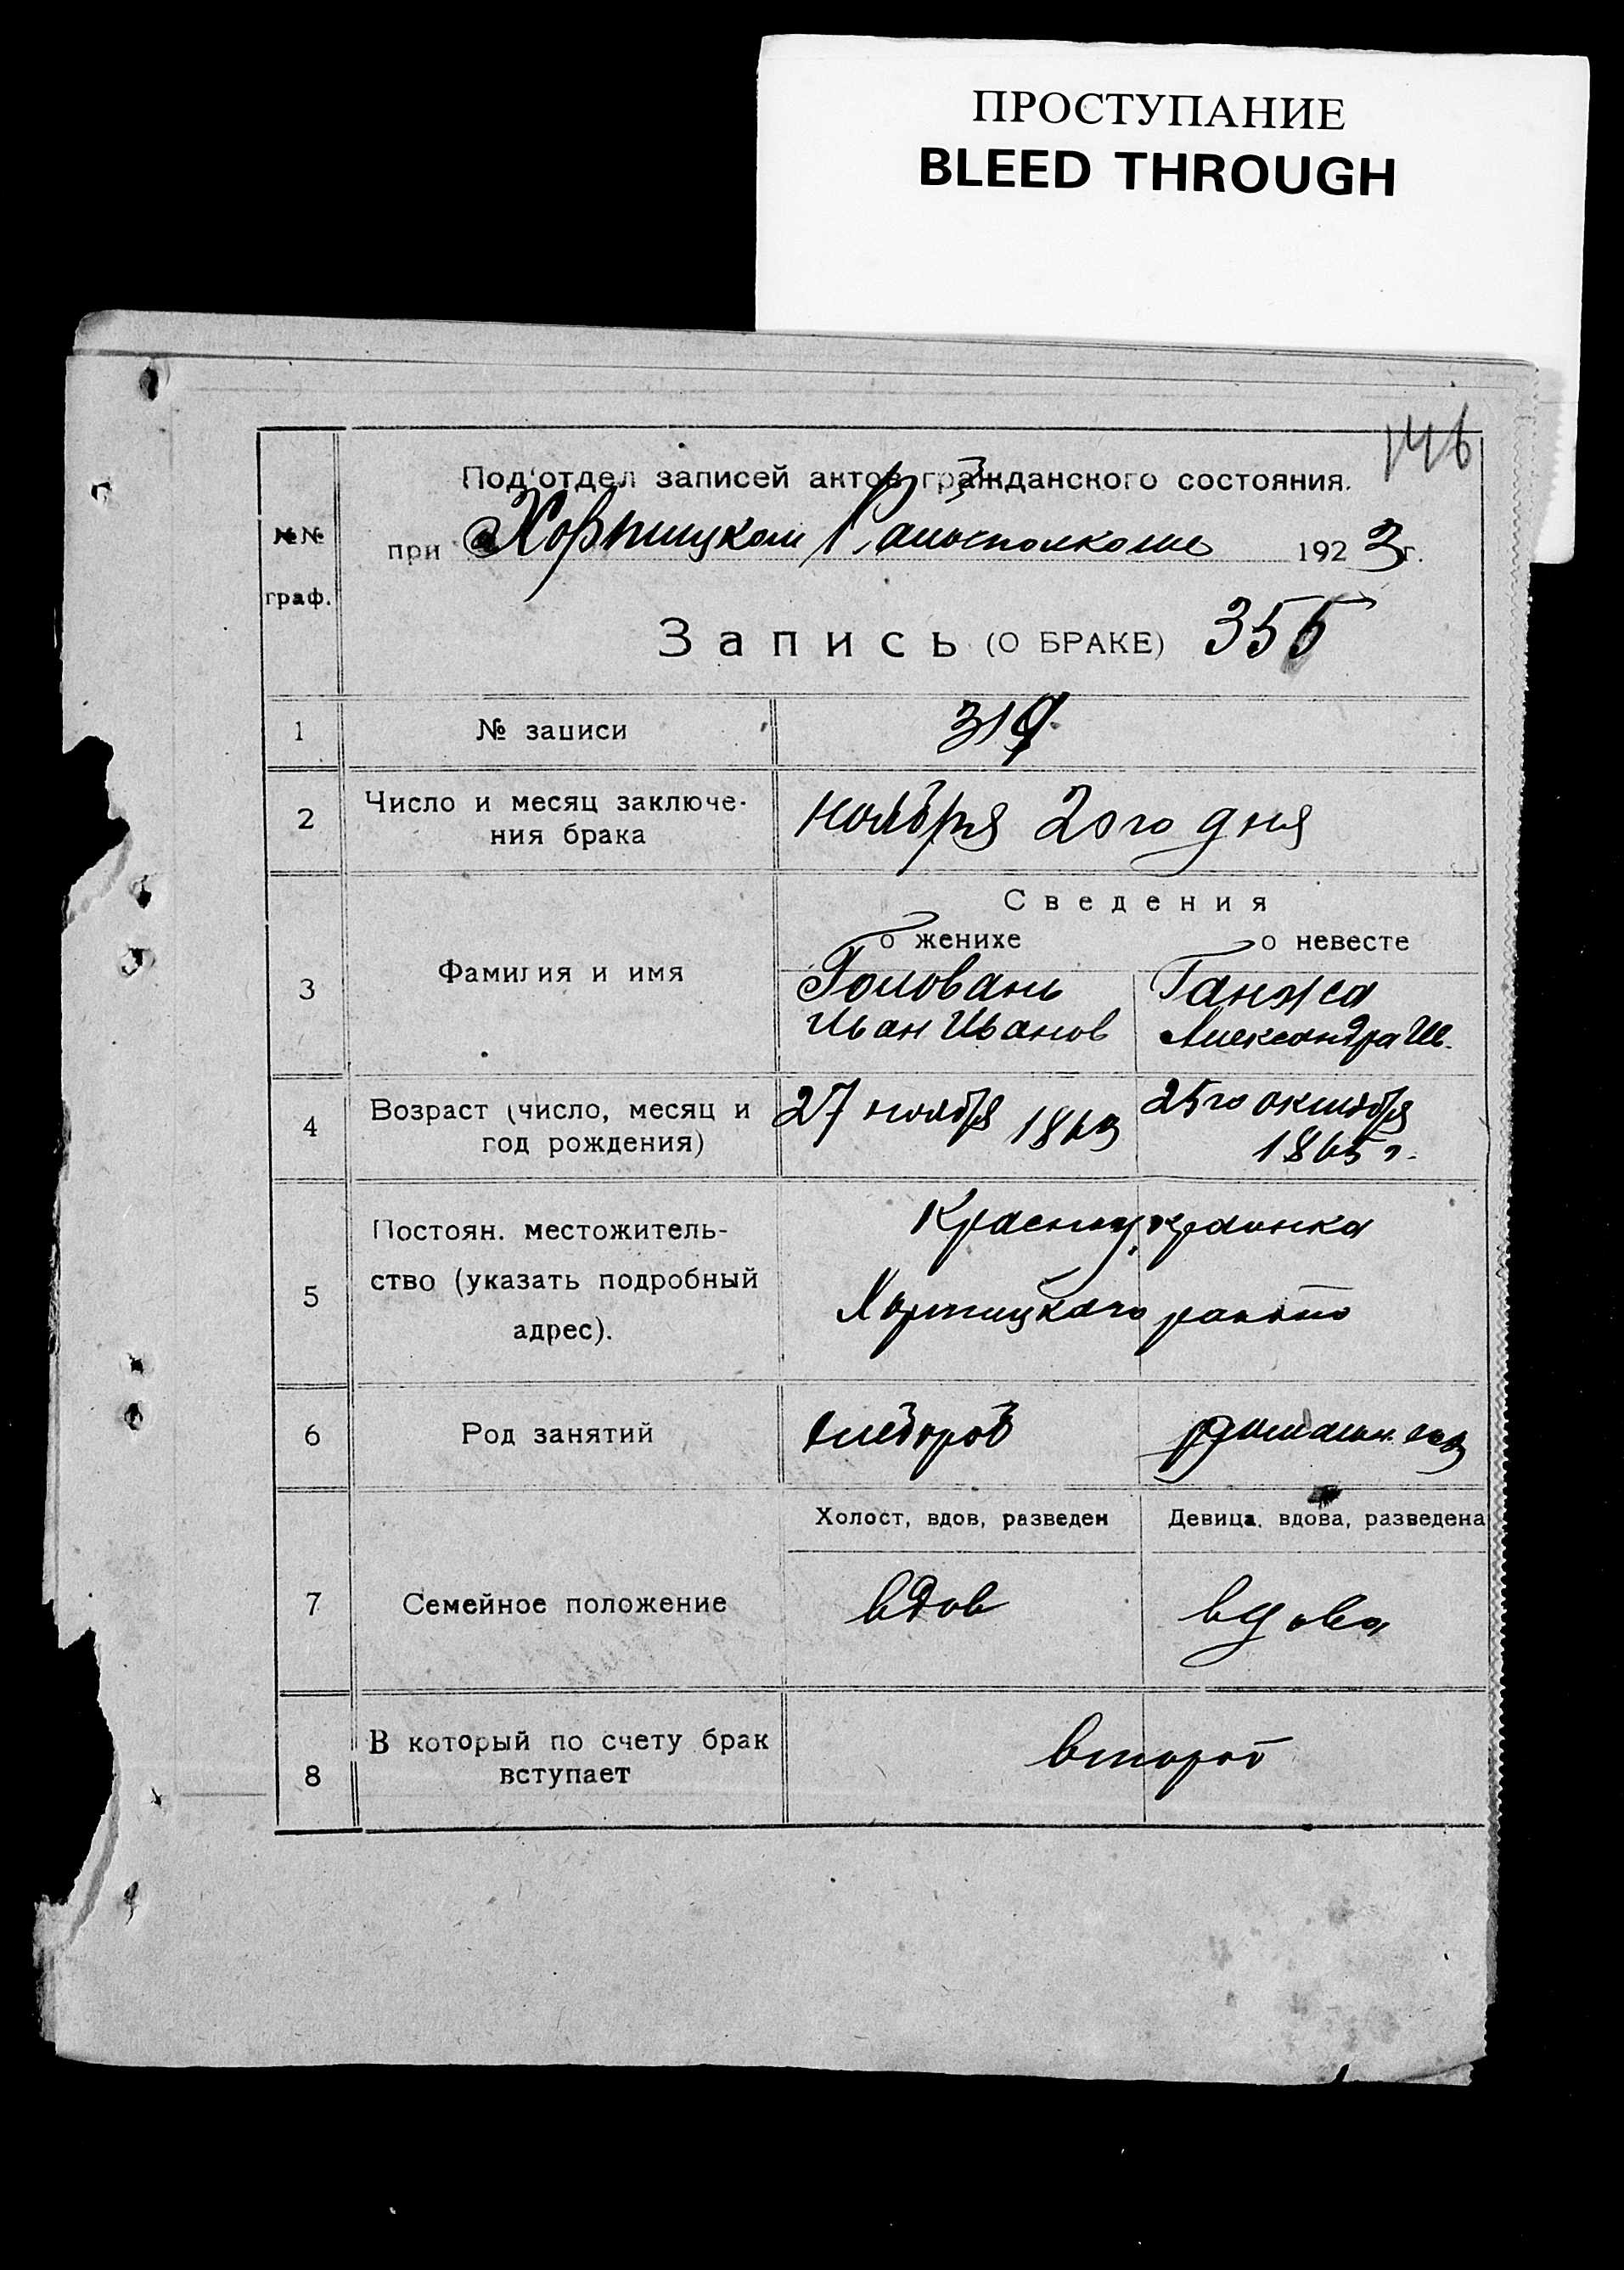 ПРОСТУПАНИЕ
BLEED THROUGH
146
Под'отдел записей актов гражданского состояния.
№№ граф.
при Хортицком Райисполкоме 1923 г.
Запись (О БРАКЕ) 355
1 № записи 319
2 Число и месяц заключе-
ния брака ноября 20го дня
Сведения
о женихе о невесте
3 Фамилия и имя Головань Ганжа
Иван Иванов Александра Ив.
4 Возраст (число, месяц и 27 ноября 1863 25го октября
год рождения) 1865 г.
5 Постоян. местожитель- Красноукраинка
ство (указать подробный
адрес). Хортицкаго район
6 Род занятий хлебороб домашн.
Холост, вдов, разведен Девица, вдова, разведена
7 Семейное положение вдов вдова
8 В который по счету брак
вступает второй